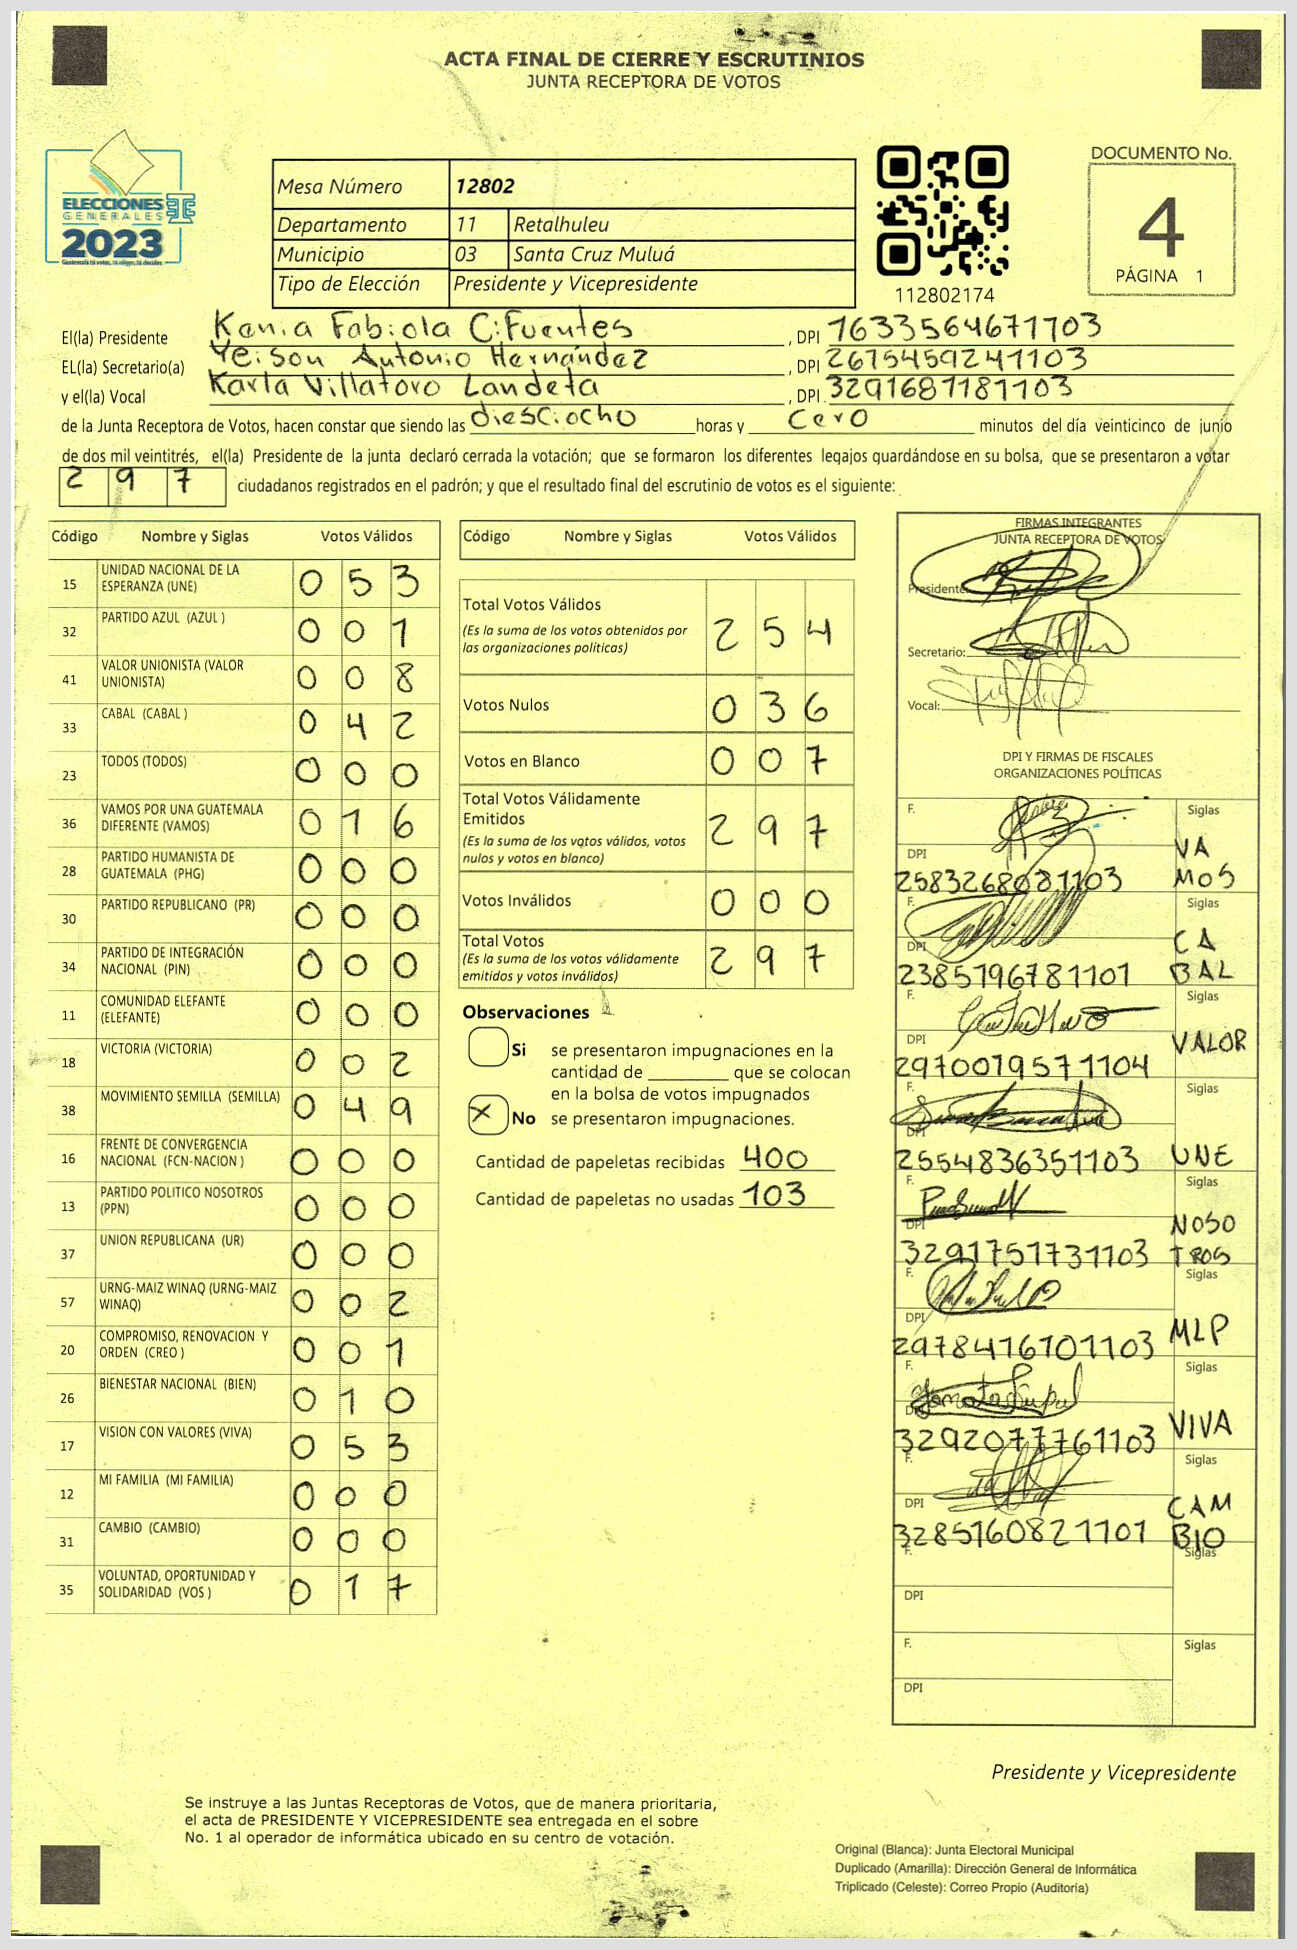 ACTA FINAL DE CIERRE Y ESCRUTINIOS
JUNTA RECEPTORA DE VOTOS
ELECCIONES
GENERALES
2023
Mesa Número 12802
Departamento 11 Retalhuleu
Municipio 03 Santa Cruz Muluá
Tipo de Elección Presidente y Vicepresidente
112802174
DOCUMENTO No.
4
PÁGINA 1
El(la) Presidente Kenia Fabiola Cifuentes, DPI 1633564671103
EL(la) Secretario(a) Yeison Antonio Hernández, DPI 2675459241103
y el(la) Vocal Karla Villatoro Landeta, DPI 3291687181103
de la Junta Receptora de Votos, hacen constar que siendo las diesciocho horas y cero minutos del día veinticinco de junio
de dos mil veintitrés, el(la) Presidente de la junta declaró cerrada la votación; que se formaron los diferentes legajos guardándose en su bolsa, que se presentaron a votar
297 ciudadanos registrados en el padrón; y que el resultado final del escrutinio de votos es el siguiente:
Código Nombre y Siglas Votos Válidos
15 UNIDAD NACIONAL DE LA ESPERANZA (UNE) 0 5 3
32 PARTIDO AZUL (AZUL ) 0 0 1
41 VALOR UNIONISTA (VALOR UNIONISTA) 0 0 8
33 CABAL (CABAL ) 0 4 2
23 TODOS (TODOS) 0 0 0
36 VAMOS POR UNA GUATEMALA DIFERENTE (VAMOS) 0 1 6
28 PARTIDO HUMANISTA DE GUATEMALA (PHG) 0 0 0
30 PARTIDO REPUBLICANO (PR) 0 0 0
34 PARTIDO DE INTEGRACIÓN NACIONAL (PIN) 0 0 0
11 COMUNIDAD ELEFANTE (ELEFANTE) 0 0 0
18 VICTORIA (VICTORIA) 0 0 2
38 MOVIMIENTO SEMILLA (SEMILLA) 0 4 9
16 FRENTE DE CONVERGENCIA NACIONAL (FCN-NACION ) 0 0 0
13 PARTIDO POLITICO NOSOTROS (PPN) 0 0 0
37 UNION REPUBLICANA (UR) 0 0 0
57 URNG-MAIZ WINAQ (URNG-MAIZ WINAQ) 0 0 2
20 COMPROMISO, RENOVACION Y ORDEN (CREO ) 0 0 1
26 BIENESTAR NACIONAL (BIEN) 0 1 0
17 VISION CON VALORES (VIVA) 0 5 3
12 MI FAMILIA (MI FAMILIA) 0 0 0
31 CAMBIO (CAMBIO) 0 0 0
35 VOLUNTAD, OPORTUNIDAD Y SOLIDARIDAD (VOS ) 0 1 7
Código Nombre y Siglas Votos Válidos
Total Votos Válidos 2 5 4
(Es la suma de los votos obtenidos por
las organizaciones políticas)
Votos Nulos 0 3 6
Votos en Blanco 0 0 7
Total Votos Válidamente
Emitidos 2 9 7
(Es la suma de los votos válidos, votos
nulos y votos en blanco)
Votos Inválidos 0 0 0
Total Votos 2 9 7
(Es la suma de los votos válidamente
emitidos y votos inválidos)
Observaciones
Si se presentaron impugnaciones en la
cantidad de ________ que se colocan
en la bolsa de votos impugnados
X No se presentaron impugnaciones.
Cantidad de papeletas recibidas 400
Cantidad de papeletas no usadas 103
FIRMAS INTEGRANTES
JUNTA RECEPTORA DE VOTOS
Presidente:
Secretario:
Vocal:
DPI Y FIRMAS DE FISCALES
ORGANIZACIONES POLÍTICAS
F. Siglas
DPI VA
2583268081103 MOS
F. Siglas
DPI CA
2385196781101 BAL
F. Siglas
DPI VALOR
2970019571104
F. Siglas
DPI
2554836351103 UNE
F. Siglas
DPI NOSO
3291751731103 TROS
F. Siglas
DPI MLP
2978416701103
F. Siglas
DPI VIVA
3292077761103
F. Siglas
DPI CAM
3285160821101 BIO
F. Siglas
DPI
F. Siglas
DPI
Presidente y Vicepresidente
Se instruye a las Juntas Receptoras de Votos, que de manera prioritaria,
el acta de PRESIDENTE Y VICEPRESIDENTE sea entregada en el sobre
No. 1 al operador de informática ubicado en su centro de votación.
Original (Blanca): Junta Electoral Municipal
Duplicado (Amarilla): Dirección General de Informática
Triplicado (Celeste): Correo Propio (Auditoría)